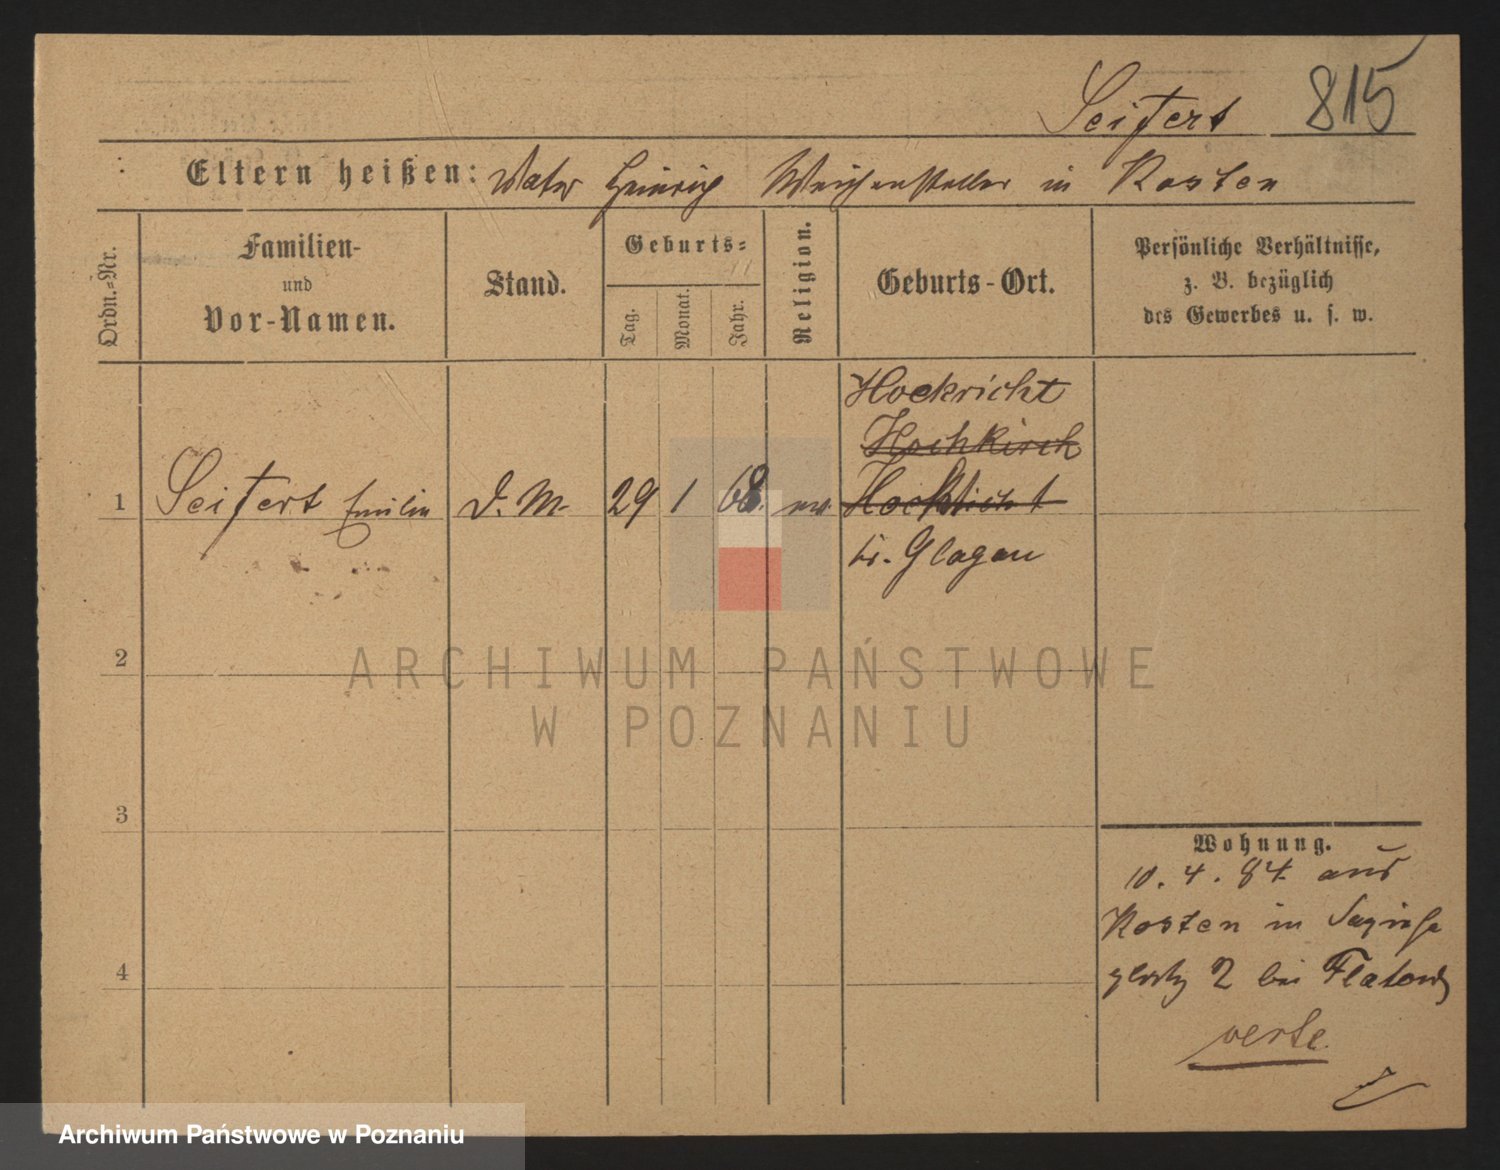 Seifert 815
Eltern heißen: Vater Heinrich Weichensteller in Kosten
Ordn.-Nr.
Familien-
und
Vor-Namen.
Stand.
Geburts-
Tag.
Monat.
Jahr.
Religion.
Geburts-Ort.
Persönliche Verhältnisse,
z. B. bezüglich
des Gewerbes u. s. w.
Hockricht
Hochkirch
1 Seifert Emilie D. M. 29 1 68. ev. Hocklicht
Kr. Glogau
2
ARCHIWUM PAŃSTWOWE
W POZNANIU
3
Wohnung.
10. 4. 84. aus
Kosten in Sapieha
platz 2 bei Flatow
4
verte
Archiwum Państwowe w Poznaniu